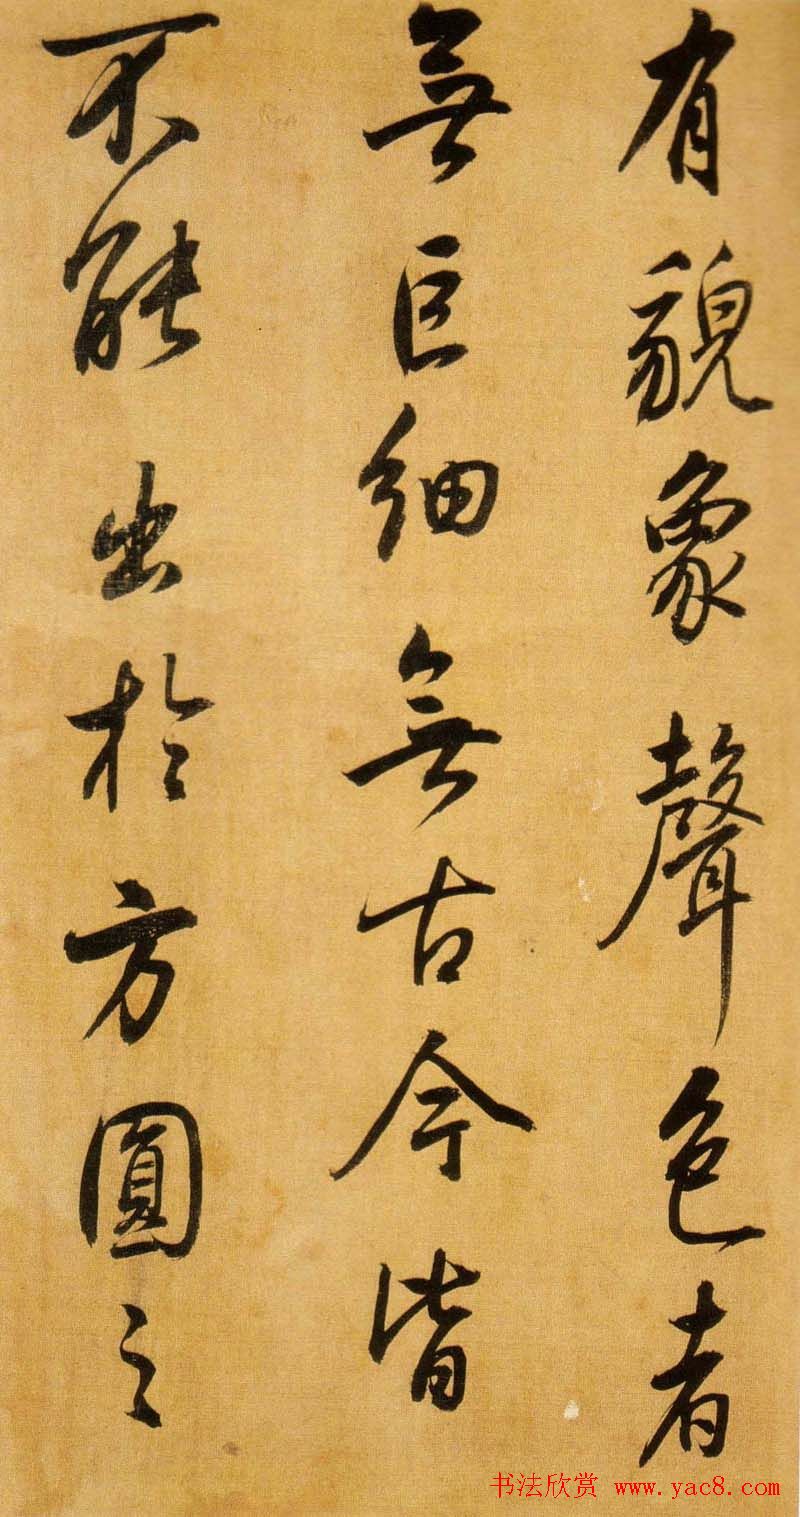 有貌象聲色者
無巨細無古今皆
不能出於方圓之
书法欣赏 www.yac8.com